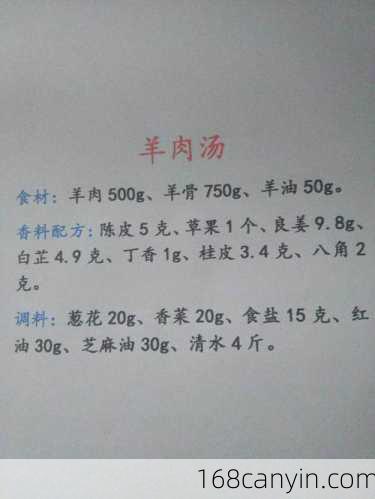 羊肉汤
食材:羊肉500g、羊骨750g、羊油50g。
香料配方:陈皮5克、草果1个、良姜9.8g、
白芷4.9克、丁香1g、桂皮3.4克、八角2
克。
调料:葱花20g、香菜20g、食盐15克、红
油30g、芝麻油30g、清水4斤。
168canyin.com